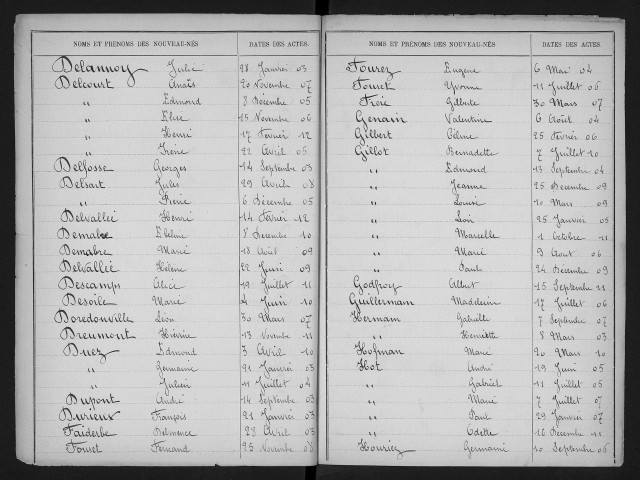 NOMS ET PRÉNOMS DES NOUVEAU-NÉS DATES DES ACTES.
Delannoy Julie 28 Janvier 03
Delcourt Anaïs 20 Novembre 07
" Edmond 8 Décembre 05
" Elise 15 Novembre 06
" Henri 17 Février 12
" Irène 22 Avril 05
Delfosse Georges 14 Septembre 03
Delsart Jules 29 Avril 08
" Pierre 6 Décembre 05
Delvallée Henri 14 Février 12
Demabre 8 Décembre 10
Demabre Marie 18 Août 09
Delvallée Hélène 22 Juin 09
Descamps Alice 19 Juillet 11
Desoile Marie 4 Juin 10
Doredonville Léon 30 Mars 07
Dreumont 13 Novembre 11
Duez Edmond 3 Avril 10
" Germaine 21 Janvier 03
" Julien 11 Juillet 04
Dupont André 14 Septembre 03
Durieux François 21 Janvier 03
Faiderbe 28 Avril 03
Fernand 25 Novembre 08
NOMS ET PRÉNOMS DES NOUVEAU-NÉS DATES DES ACTES.
Eugène 6 Mai 04
Yvonne 11 Juillet 06
30 Mars 07
Genain Valentine 6 Août 04
Gilbert Céline 25 Février 06
Gillot Bernadette 7 Juillet 10
" Edmond 13 Septembre 04
" Jeanne 25 Décembre 08
" Louise 10 Mars 09
" 25 Janvier 05
" Marcelle 1 Octobre 11
" Marie 9 Août 06
" Paul 24 Décembre 09
Godfroy Albert 15 Septembre 11
Guillerman 17 Juillet 06
Hermam Gabrielle 7 Septembre 07
" Henriette 8 Mars 03
Hofman Marie 20 Mars 10
Hot André 19 Juin 05
" Gabriel 11 Juillet 05
" Marie 7 Juillet 07
" Paul 29 Janvier 07
" Odette 16 Décembre 11
Houriez Germaine 10 Septembre 06